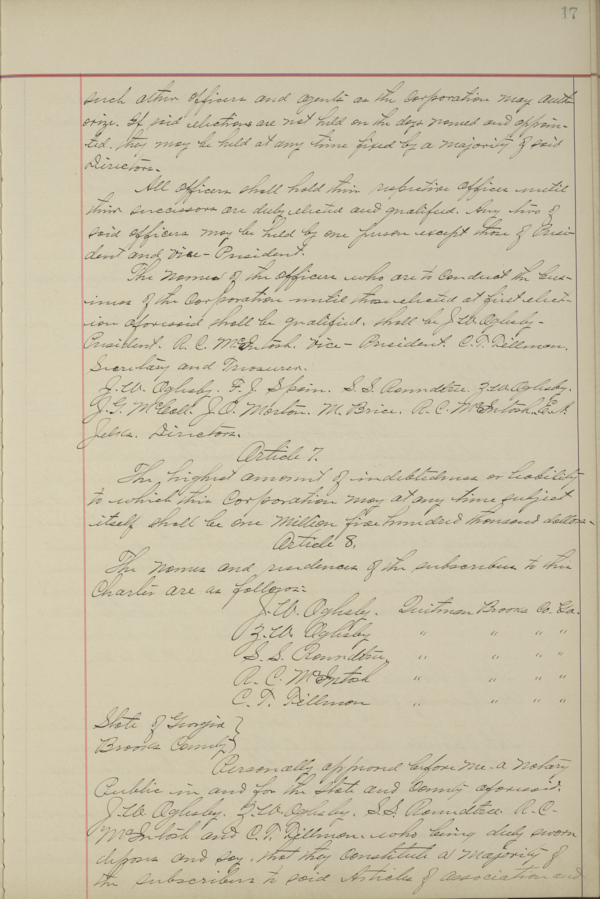 17
such other officers and agents as the Corporation may auth-
orize. If said elections are not held on the days named and appoin-
ted, they may be held at any time fixed by a majority of said
Directors.
All officers shall hold their respective offices until
their successors are duly elected and qualified. Any two of
said officers may be held by one person except those of Presi-
dent and Vice-President.
The names of the officers who are to conduct the bus-
iness of the Corporation until those elected at first elect-
ion aforesaid shall be qualified, shall be J. W. Oglesby-
President. R. C. McIntosh. Vice-President. C. T. Tillman.
Secretary and Treasurer.
J. W. Oglesby. F. J. Spain. S. S. Rountree. Z. W. Oglesby.
J. G. McCall. J. O. Morton. M. Brice. R. C. McIntosh.
Directors.
Article 7.
The highest amount of indebtedness or liability
to which this Corporation may at any time subject
itself shall be one Million five hundred thousand dollars-
Article 8.
The names and residences of the subscribers to this
Charter are as follows:-
J. W. Oglesby. Quitman Brooks Co. Ga.
Z. W. Oglesby " " " "
S. S. Rountree. " " " "
R. C. McIntosh " " " "
C. T. Tillman " " " "
State of Georgia }
Brooks County }
Personally appeared before me a Notary
Public in and for the State and County aforesaid.
J. W. Oglesby. Z. W. Oglesby. S. S. Rountree. R. C.
McIntosh and C. T. Tillman. who being duly sworn
depose and say. that they constitute a majority of
the subscribers to said Articles of association and